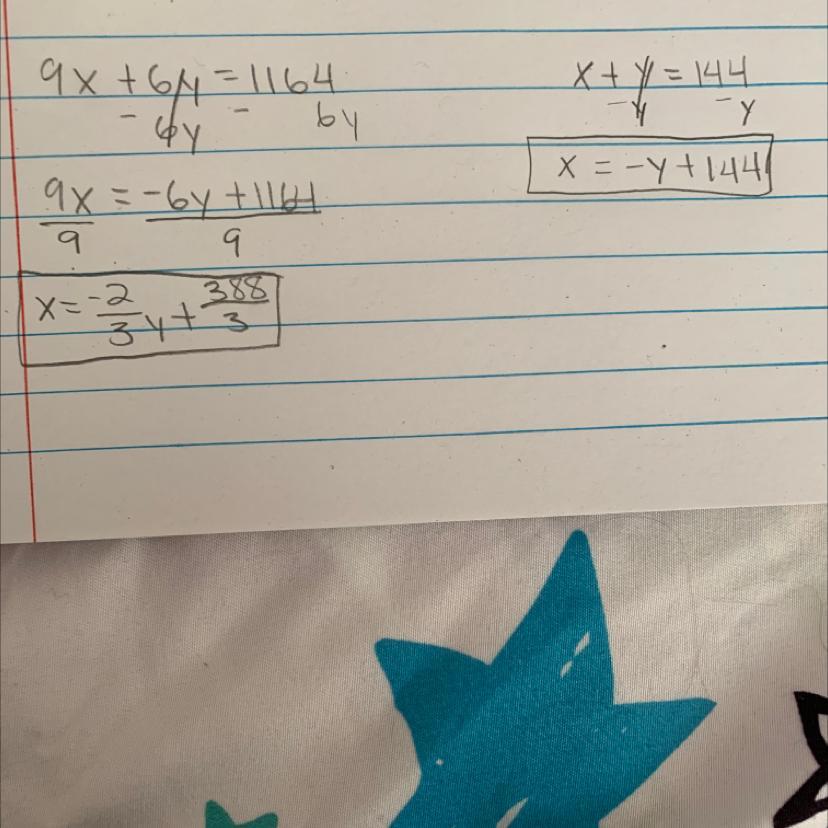 9x + 6y = 1164
- 6y - 6y
9x = -6y + 1164
9 9
x = -2/3 y + 388/3
x + y = 144
-y -y
x = -y + 144